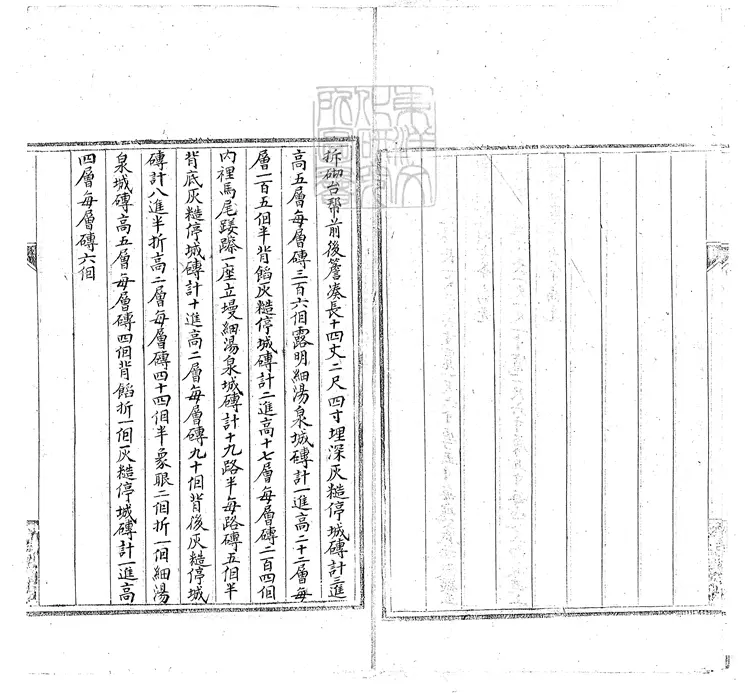 拆砌台幫前後簷湊長十四丈二尺四寸埋深灰糙停城磚計三進
高五層每層磚三百六個露明細湯泉城磚計一進高二十二層每
層一百五個半背餡灰糙停城磚計二進高十七層每層磚二百四個
內裡馬尾踐䠀一座立墁細湯泉城磚計十九路半每路磚五個半
背底灰糙停城磚計十進高二層每層磚九十個背後灰糙停城
磚計八進半折高二層每層磚四十四個半象眼二個折一個細湯
泉城磚高五層每層磚四個背餡折一個灰糙停城磚計一進高
四層每層磚六個